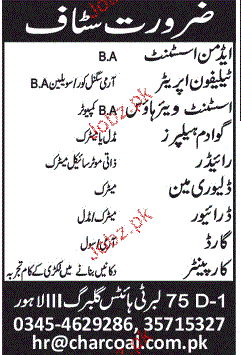 ضرورت سٹاف
ایڈمن اسسٹنٹ B.A
ٹیلیفون اپریٹر آرمی سگنل کور/سویلین B.A
اسسٹنٹ ویئر ہاؤس B.A کمپیوٹر
گودام ہیلپرز مڈل یا میٹرک
رائیڈر ذاتی موٹر سائیکل میٹرک
ڈلیوری مین میٹرک
ڈرائیور میٹرک/مڈل
گارڈ آرمی/سول
کارپینٹر دکانیں بنانے میں لکڑی کے کام تجربہ
75 D-1 لبرٹی ہائٹس گلبرگ III لاہور
0345-4629286, 35715327
hr@charcoal.com.pk
Jobz.pk